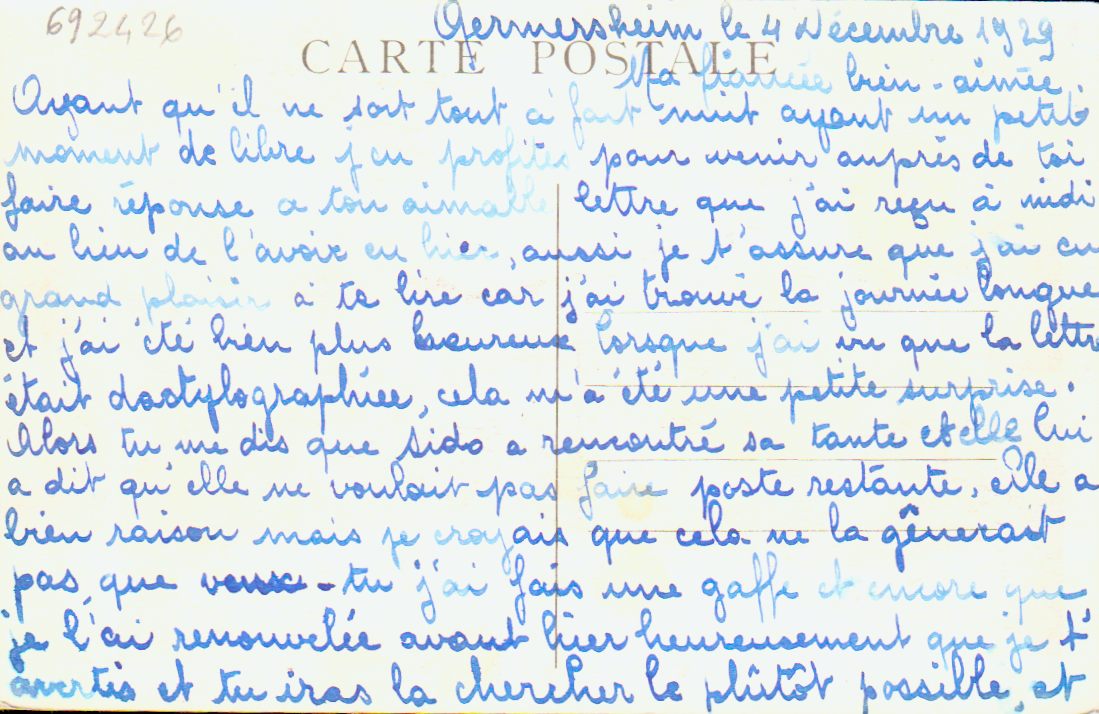 692426
Germersheim le 4 Décembre 1929
CARTE POSTALE
Ma fiancée bien-aimée.
Ayant qu'il ne soit tout à fait nuit ayant un petit
moment de libre j'en profites pour venir auprès de toi
faire réponse a ton aimable lettre que j'ai reçu à midi
au lieu de l'avoir eu hier, aussi je t'assure que j'ai eu
grand plaisir a ta lire car j'ai trouvé la journée longue
et j'ai été bien plus heureux lorsque j'ai vu que la lettre
était dactylographiée, cela m'a été une petite surprise.
Alors tu me dis que Sido a rencontré sa tante et elle lui
a dit qu'elle ne voulait pas faire poste restante, elle a
bien raison mais je croyais que cela ne la gênerait
pas, que veux-tu j'ai fais une gaffe et encore que
je l'ai renouvelée avant hier heureusement que je t'
avertis et tu iras la chercher le plûtôt possible, et